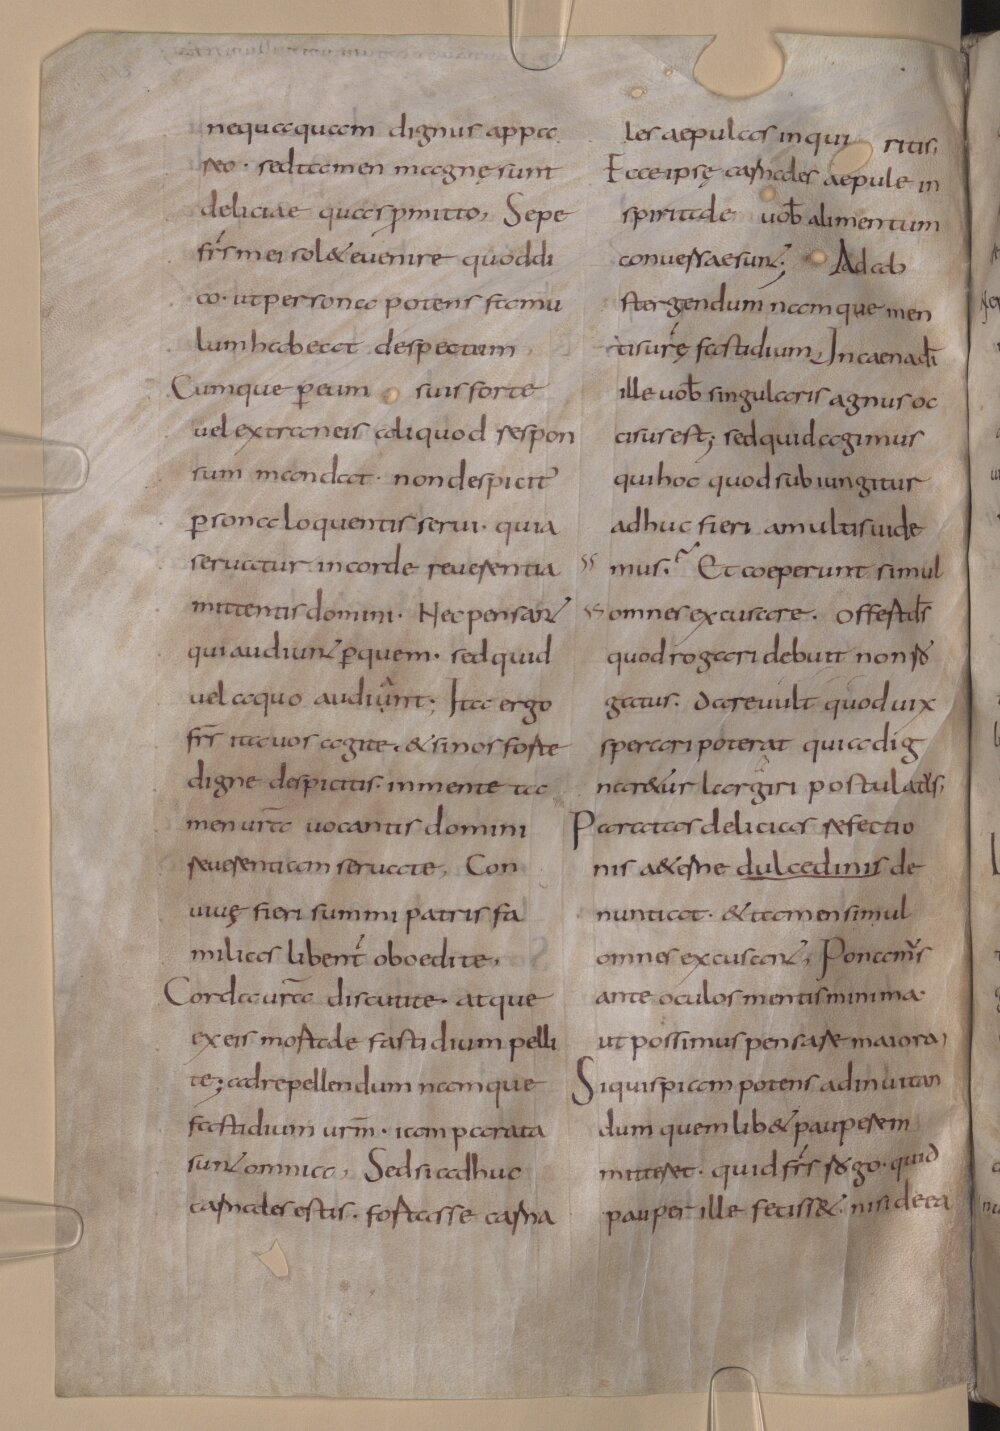 nequaquam dignus appa
reo · sed tamen magnę sunt
deliciae quas ꝑmitto, Sepe
fr̄s mei sol& euenire quod di
co · ut persona potens famu
lum habeat despectum
Cumque ꝑ eum suis forte
uel extraneis aliquod respon
sum mandat · non despicit̄
ꝑsona loquentis serui · quia
seruatur in corde reuerentia
mittentis domini · Nec pensan̄
qui audiun̄ ꝑ quem · sed quid
uel a quo audiunt; Ita ergo
fr̄s ita uos agite, & si nos forte
digne despicitis · in mente ta
men ur̄a uocantis domini
reuerentiam seruate, Con
uiuę fieri summi patris fa
milias libent̄ oboedite,
Corda ur̄a discutite · atque
ex eis mortale fastidium pelli
te; ad repellendum namque
fastidium ur̄m · iam parata
sun̄ omnia, Sed si adhuc
carnales estis · fortasse carna
les aepulas inquiritis,
Ecce ipsę carnales aepule in
spiritale uob̄ alimentum
conuersae sun̄; Ad ab
stergendum namque men
tis ur̄ę fastidium, In caena dī
ille uob̄ singularis agnus oc
cisus est; sed quid agimus
qui hoc quod subiungitur
adhuc fieri a multis uide
mus · Et coeperunt simul
omnes excusare · Offert d̄s
quod rogari debuit non ro
gatus · dare uult quod uix
sperari poterat quia dig
nar&ur largiri postulatus,
Paratas delicias refectio
nis a&erne dulcedinis de
nuntiat · & tamen simul
omnes excusan̄, Ponam̄s
ante oculos mentis minima ·
ut possimus pensare maiora,
Si quispiam potens ad inuitan
dum quemlib& pauperem
mitteret · quid fr̄s rogo · quid
pauper ille feciss& · nisi de ea